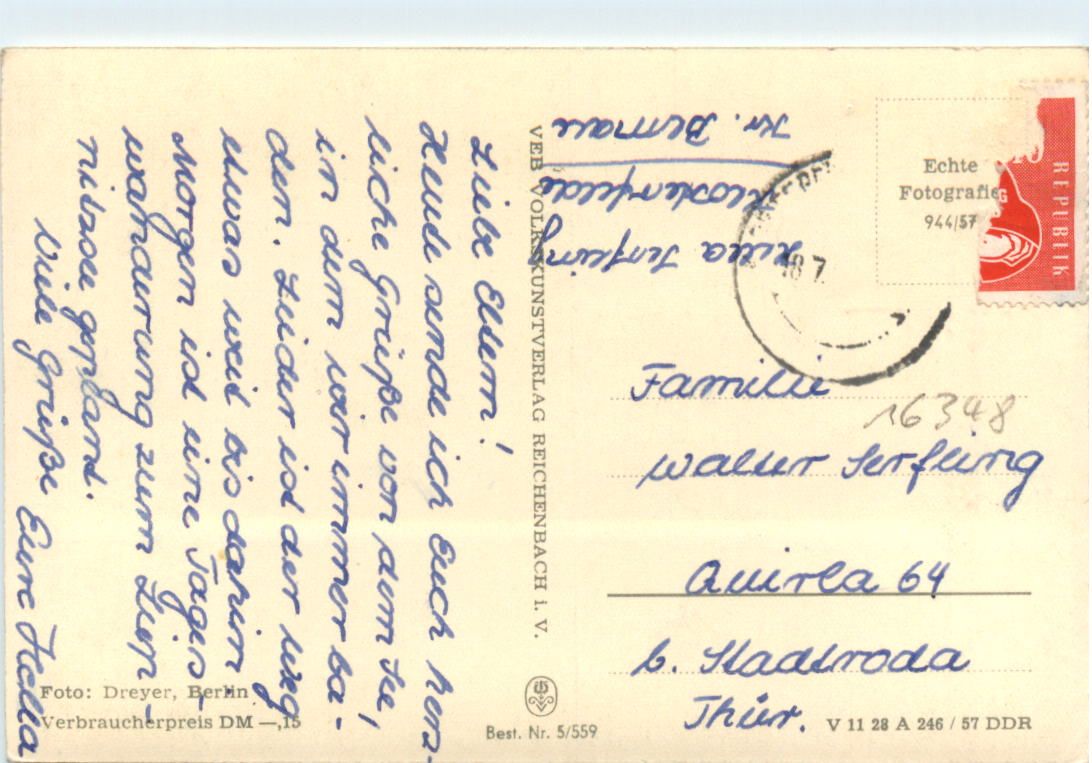 Liebe Eltern!
Heute sende ich Euch herz-
liche Grüße von dem See,
in dem wir immer ba-
den. Leider ist der Weg
etwas weit bis dahin
Morgen ist eine Tages-
wanderung zum Liep-
nitzsee geplant.
Viele Grüße Eure Hella
Foto: Dreyer, Berlin
Verbraucherpreis DM —,15
VEB VOLKSKUNSTVERLAG REICHENBACH i. V.
Best. Nr. 5/559
Hella Serfling
Klosterfelde
Kr. Bernau
Echte
Fotografie
944/57
REPUBLIK
18 7
Familie
16348
Walter Serfling
Quirla 64
b. Stadtroda
Thür.
V 11 28 A 246 / 57 DDR